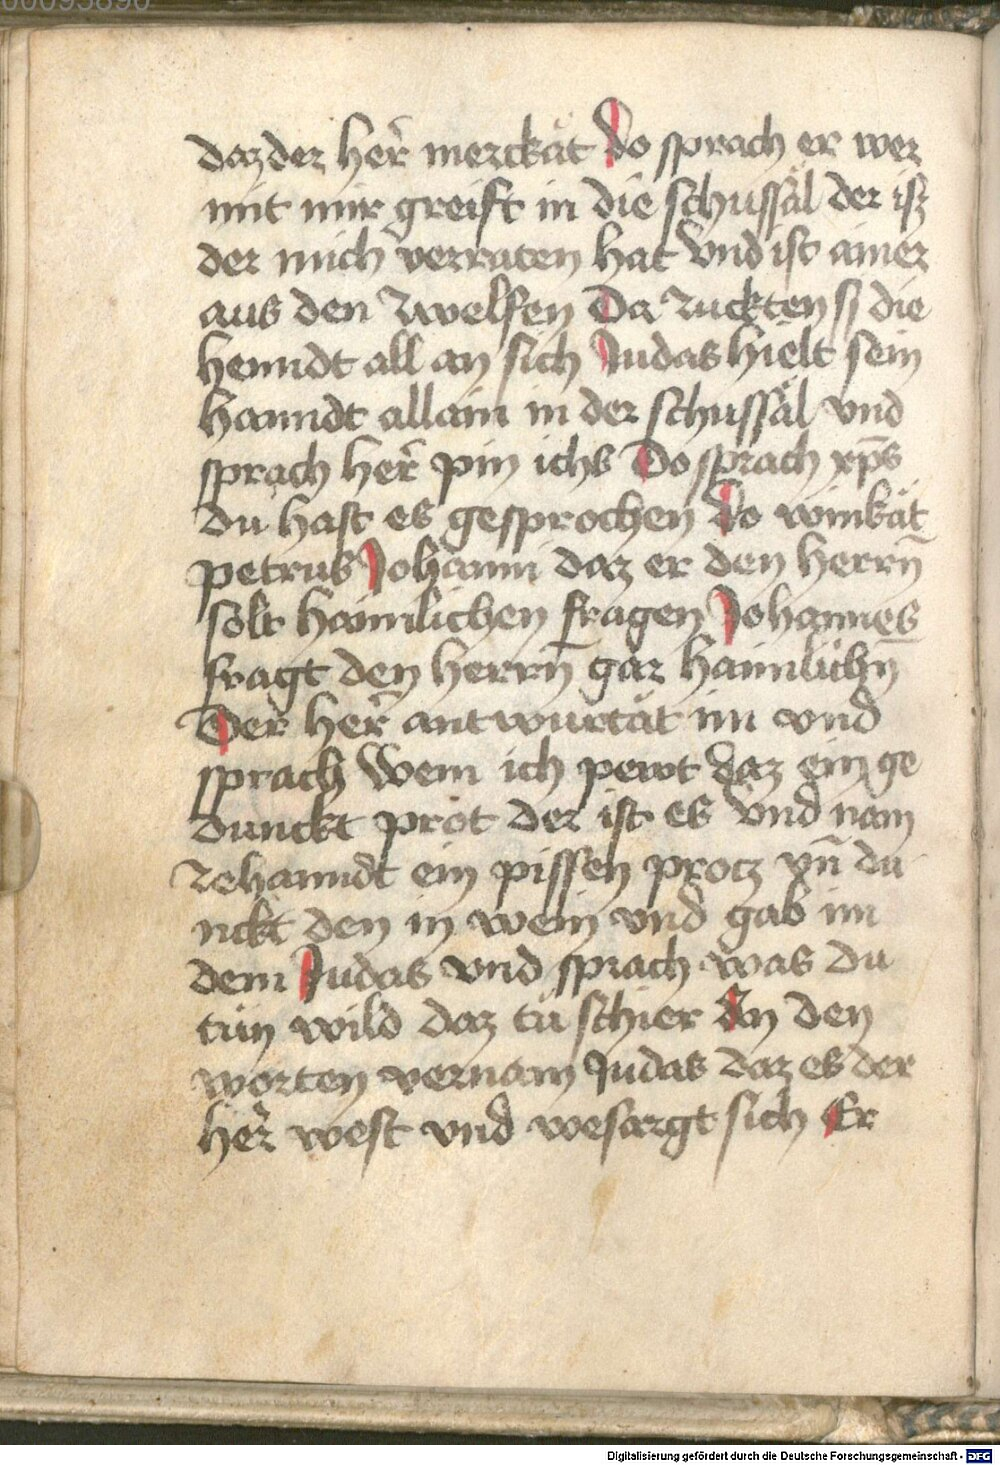 00095890
daz der her̄ merckat̾ Do sprach er wer
mit mir greift in die schussäl der ist
der mich verraten hat Vnd ist ainer
aus den zwelfen Da zuckten sj die
henndt all an sich Judas hielt sein
hanndt allain in der schussäl vnd
sprach her̄ pin ichs Do sprach xp̄s
du hast es gesprochen Do winkät
petrus Johanni daz er den herrn̄
solt haimlichen fragen Johannes
fragt den herrn̄ gar haimlichn̄
Der her̄ antwurtät im vnd
sprach Wem ich pewt daz ein ge
dunckt prot der ist es vnd nam
zehanndt ein pissen protz vn̄ du
nckt den in wein vnd gab im
dem Judas vnd sprach was du
tün wild daz tü schier An den
worten vernam Judas daz es der
her̄ west vnd wesargt sich Er
Digitalisierung gefördert durch die Deutsche Forschungsgemeinschaft - DFG